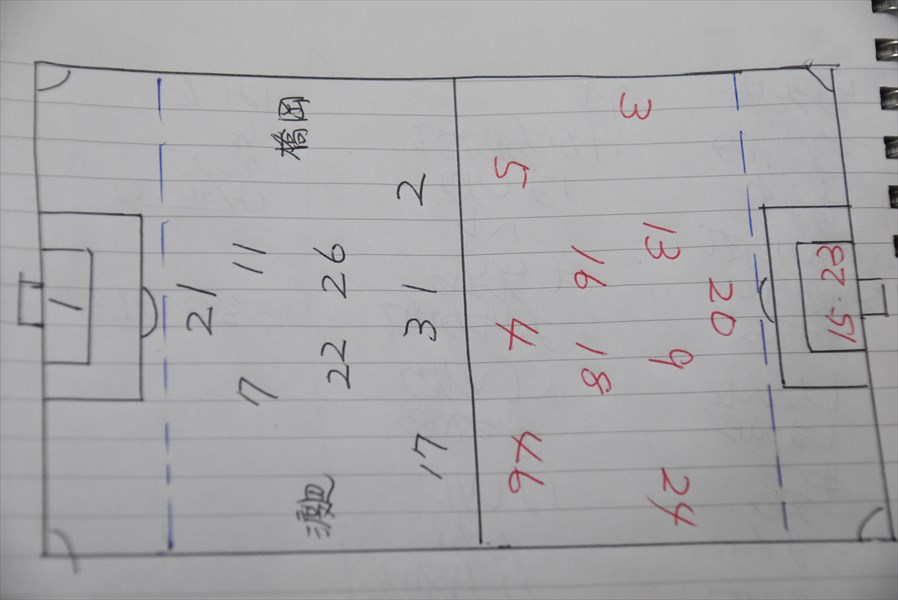 1
21
7 11
渡辺 22 26 橋岡
17 31 2
28・51
20
3 13 9 24
16 18
5 4 46